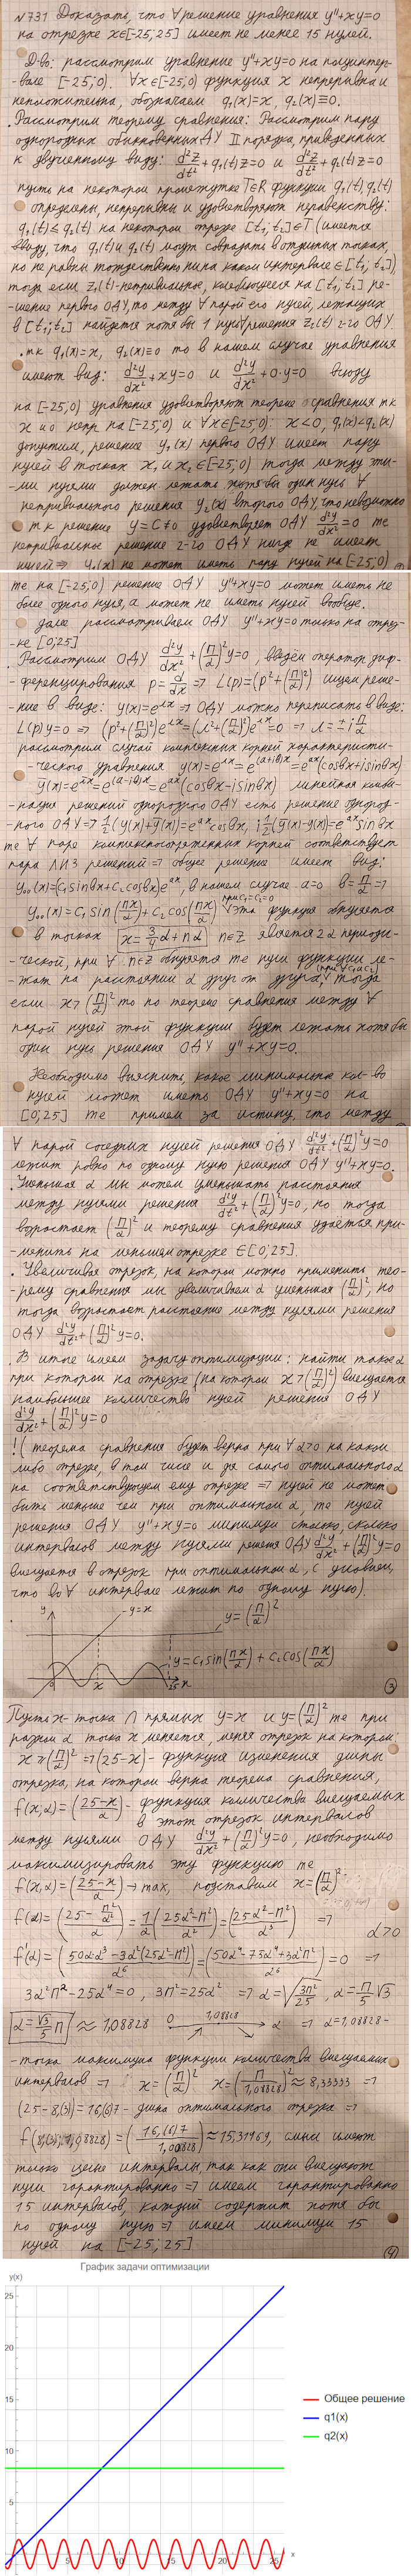 №731 Доказать, что ∀ решение уравнения y''+xy=0
на отрезке x∈[-25;25] имеет не менее 15 нулей.
Д-во: рассмотрим уравнение y''+xy=0 на полуинтер-
-вале [-25;0). ∀x∈[-25;0) функция x непрерывна и
неположительна, обозначаем q₁(x)=x, q₂(x)≡0.
Рассмотрим теорему сравнения: Рассмотрим пару
однородных обыкновенных ДУ II порядка, приведенных
к двучленному виду: d²z/dt²+q₁(t)z=0 и d²z/dt²+q₂(t)z=0
пусть на некотором промежутке T∈R функции q₁(t), q₂(t)
определены, непрерывны и удовлетворяют неравенству:
q₁(t)≤q₂(t) на некотором отрезке [t₁;t₂]∈T (имеется
ввиду, что q₁(t) и q₂(t) могут совпадать в отдельных точках,
но не равны тождественно ни на каком интервале ∈[t₁;t₂]),
тогда если z₁(t)-нетривиальное, колеблющееся на [t₁;t₂] ре-
-шение первого ОДУ, то между ∀ парой его нулей, лежащих
в [t₁;t₂] найдется хотя бы 1 нуль ∀ решения z₂(t) 2-го ОДУ.
тк q₁(x)=x, q₂(x)≡0 то в нашем случае уравнения
имеют вид: d²y/dx²+xy=0 и d²y/dx²+0·y=0 всюду
на [-25;0) уравнения удовлетворяют теореме сравнения тк
x и 0 непр на [-25;0) и ∀x∈[-25;0): x<0, q₁(x)<q₂(x)
допустим, решение y₁(x) первого ОДУ имеет пару
нулей в точках x₁ и x₂∈[-25;0) тогда между эти-
-ми нулями должен лежать хотя бы один нуль ∀
нетривиального решения y₂(x) второго ОДУ, что невозможно
тк решение y=C≠0 удовлетворяет ОДУ d²y/dx²=0 те
нетривиальное решение 2-го ОДУ нигде не имеет
нулей ⇒ y₁(x) не может иметь пару нулей на [-25;0)
те на [-25;0) решение ОДУ y''+xy=0 может иметь не
более одного нуля, а может не иметь нулей вообще.
далее рассматриваем ОДУ y''+xy=0 только на отрез-
-ке [0;25]
Рассмотрим ОДУ d²y/dx²+(π/α)²y=0, введём оператор диф-
-ференцирования p=d/dx ⇒ L(p)=(p²+(π/α)²) ищем реше-
-ние в виде: y(x)=e^λx ⇒ ОДУ можно переписать в виде:
L(p)y=0 ⇒ (p²+(π/α)²)e^λx=(λ²+(π/α)²)e^λx=0 ⇒ λ=±iπ/α
рассмотрим случай комплексных корней характеристи-
-ческого уравнения y(x)=e^λx=e^(a+ib)x=e^ax(cosbx+isinbx)
ȳ(x)=e^λ̄x=e^(a-ib)x=e^ax(cosbx-isinbx) линейная комби-
-нация решений однородного ОДУ есть решение однород-
-ного ОДУ ⇒ 1/2(y(x)+ȳ(x))=e^ax cosbx, i1/2(ȳ(x)-y(x))=e^ax sinbx
те ∀ паре комплексносопряженных корней соответствует
пара ЛНЗ решений ⇒ общее решение имеет вид:
y₀₀(x)=(C₁sinbx+C₂cosbx)e^ax, в нашем случае a=0 b=π/α ⇒
y₀₀(x)=C₁sin(πx/α)+C₂cos(πx/α) при C₁=C₂=1 эта функция обнуляется
в точках x=3/4α+nα n∈Z является 2α периоди-
-ческой, при ∀ n∈Z обнуляется те нули функции ле-
-жат на расстоянии α друг от друга (при ∀ C₁ и C₂) тогда
если x>(π/α)² то по теореме сравнения между ∀
парой нулей этой функции будет лежать хотя бы
один нуль решения ОДУ y''+xy=0.
Необходимо выяснить, какое минимальное кол-во
нулей может иметь ОДУ y''+xy=0 на
[0;25] те примем за истину, что между
∀ парой соседних нулей решения ОДУ d²y/dt²+(π/α)²y=0
лежит ровно по одному нулю решения ОДУ y''+xy=0.
Уменьшая α мы можем уменьшать расстояния
между нулями решения d²y/dt²+(π/α)²y=0, но тогда
возрастает (π/α)² и теорему сравнения удается при-
-менить на меньшем отрезке ∈[0;25].
Увеличивая отрезок, на котором можно применить тео-
-рему сравнения мы увеличиваем α уменьшая (π/α)², но
тогда возрастает расстояние между нулями решения
ОДУ d²y/dt²+(π/α)²y=0.
В итоге имеем задачу оптимизации: найти такое α
при котором на отрезке (на котором x>(π/α)²) вмещается
наибольшее количество нулей решения ОДУ
d²y/dx²+(π/α)²y=0
!(теорема сравнения будет верна при ∀ α>0 на каком
либо отрезке, в том числе и для самого оптимального α
на соответствующем ему отрезке ⇒ нулей не может
быть меньше чем при оптимальном α, те нулей
решения ОДУ y''+xy=0 минимум столько, сколько
интервалов между нулями решения ОДУ d²y/dx²+(π/α)²y=0
вмещается в отрезок при оптимальном α, с условием,
что во ∀ интервале лежит по одному нулю).
y
y=x
y=(π/α)²
y=C₁sin(πx/α)+C₂cos(πx/α)
0
x
25 x
3
Пусть x-точка ∩ прямых y=x и y=(π/α)² те при
разном α точка x меняется, меняя отрезок на котором:
x≥(π/α)² ⇒ (25-x)-функция изменения длины
отрезка, на котором верна теорема сравнения,
f(x,α)=((25-x)/α)-функция количества вмещаемых
в этот отрезок интервалов
между нулями ОДУ d²y/dx²+(π/α)²y=0, необходимо
максимизировать эту функцию те
f(x,α)=((25-x)/α)→max, подставим x=(π/α)²
f(α)=((25-π²/α²)/α)=1/α((25α²-π²)/α²)=((25α²-π²)/α³) ⇒ α>0
f'(α)=((50αα³-3α²(25α²-π²))/α⁶)=((50α⁴-75α⁴+3α²π²)/α⁶)=0 ⇒
3α²π²-25α⁴=0, 3π²=25α² ⇒ α=√(3π²/25), α=π/5√3
α=√3/5π ≈1,08828 0 1,08828 α ⇒ α=1,08828-
-точка максимума функции количества вмещаемых
интервалов ⇒ x=(π/α)² x=(π/1,08828)²≈8,33333 ⇒
(25-8,(3))=16,(6)7-длина оптимального отрезка ⇒
f(8,(3);1,08828)=(16,(6)7/1,08828)≈15,31469, смысл имеют
только целые интервалы, так как они вмещают
нули гарантированно ⇒ имеем гарантированно
15 интервалов, каждый содержит хотя бы
по одному нулю ⇒ имеем минимум 15
нулей на [-25;25]
4
График задачи оптимизации
y(x)
25
20
15
10
5
5 10 15 20 25 x
Общее решение
q1(x)
q2(x)